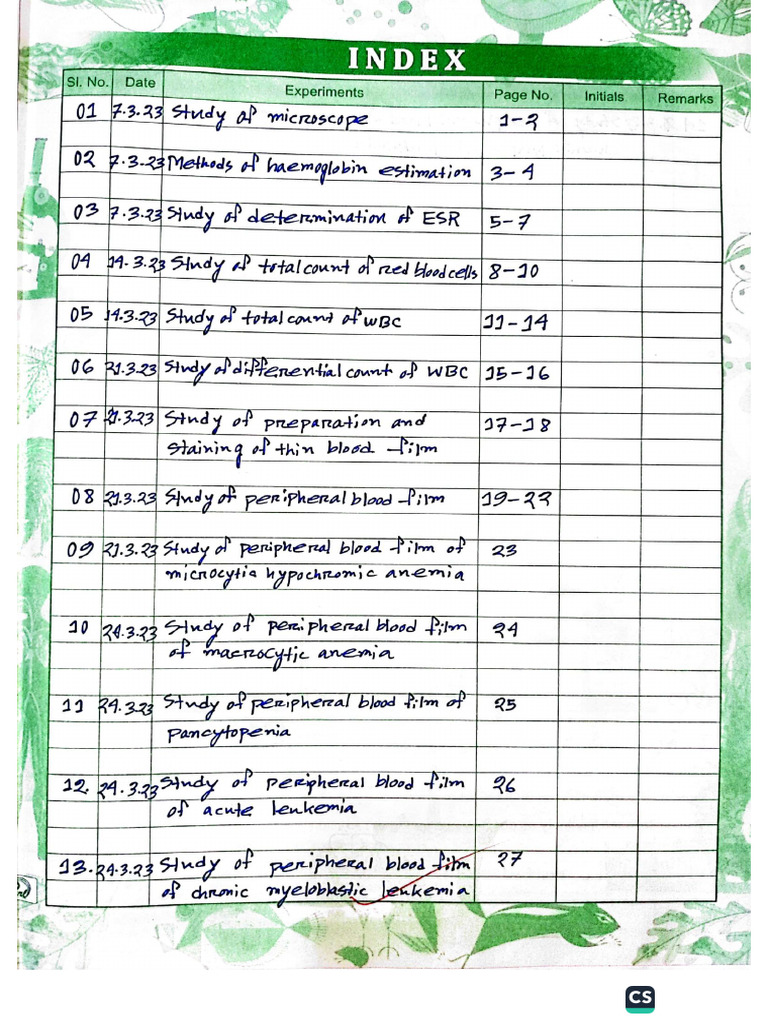 INDEX
Sl. No. Date Experiments Page No. Initials Remarks
01 7.3.23 Study of microscope 1-2
02 7.3.23 Methods of haemoglobin estimation 3-4
03 7.3.23 Study of determination of ESR 5-7
04 14.3.23 Study of total count of Red blood cells 8-10
05 14.3.23 Study of total count of WBC 11-14
06 21.3.23 Study of differential count of WBC 15-16
07 21.3.23 Study of preparation and 17-18
staining of thin blood film
08 21.3.23 Study of peripheral blood film 19-22
09 21.3.23 Study of peripheral blood film of 23
microcytic hypochromic anemia
10 24.3.23 Study of peripheral blood film 24
of macrocytic anemia
11 24.3.23 Study of peripheral blood film of 25
pancytopenia
12. 24.3.23 Study of peripheral blood film 26
of acute leukemia
13. 24.3.23 Study of peripheral blood film 27
of chronic myeloblastic leukemia
CS